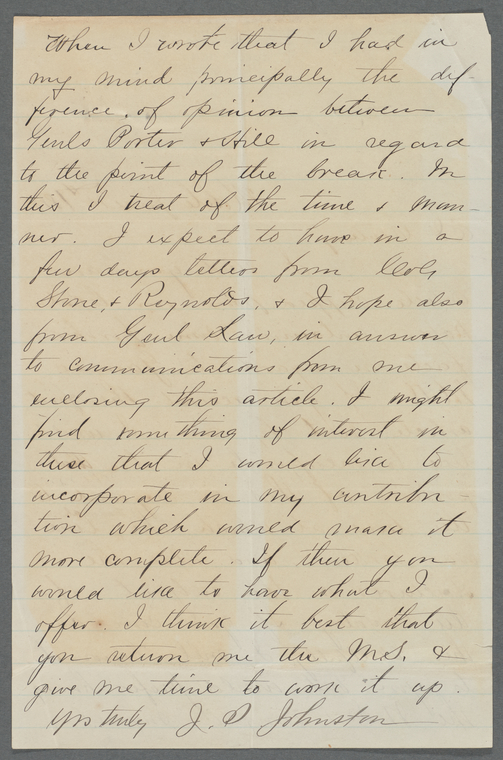 When I wrote that I had in
my mind principally the dif-
ference of opinion between
Genls Porter & Hill in regard
to the point of the break. In
this I treat of the time & man-
ner. I expect to have in a
few days letters from Cols
Stone, & Reynolds, & I hope also
from Genl Law, in answer
to communications from me
enclosing this article. I might
find something of interest in
these that I would like to
incorporate in my contribu-
tion which would make it
more complete. If then you
would like to have what I
offer. I think it best that
you return me the M.S. &
give me time to work it up.
Yrs truly J. D Johnston